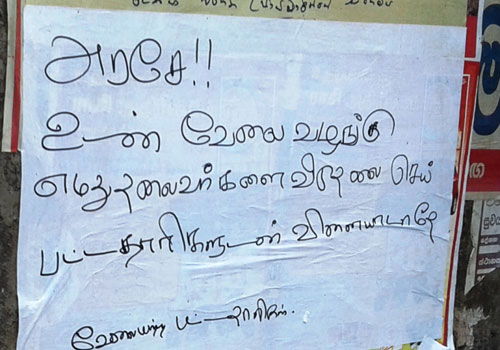 அரசே!!
உன் வேலை வழங்கு
எமது தலைவர்களை விடுதலை செய்
பட்டதாரிகளுடன் விளையாடாதே
வேலையற்ற பட்டதாரிகள்.